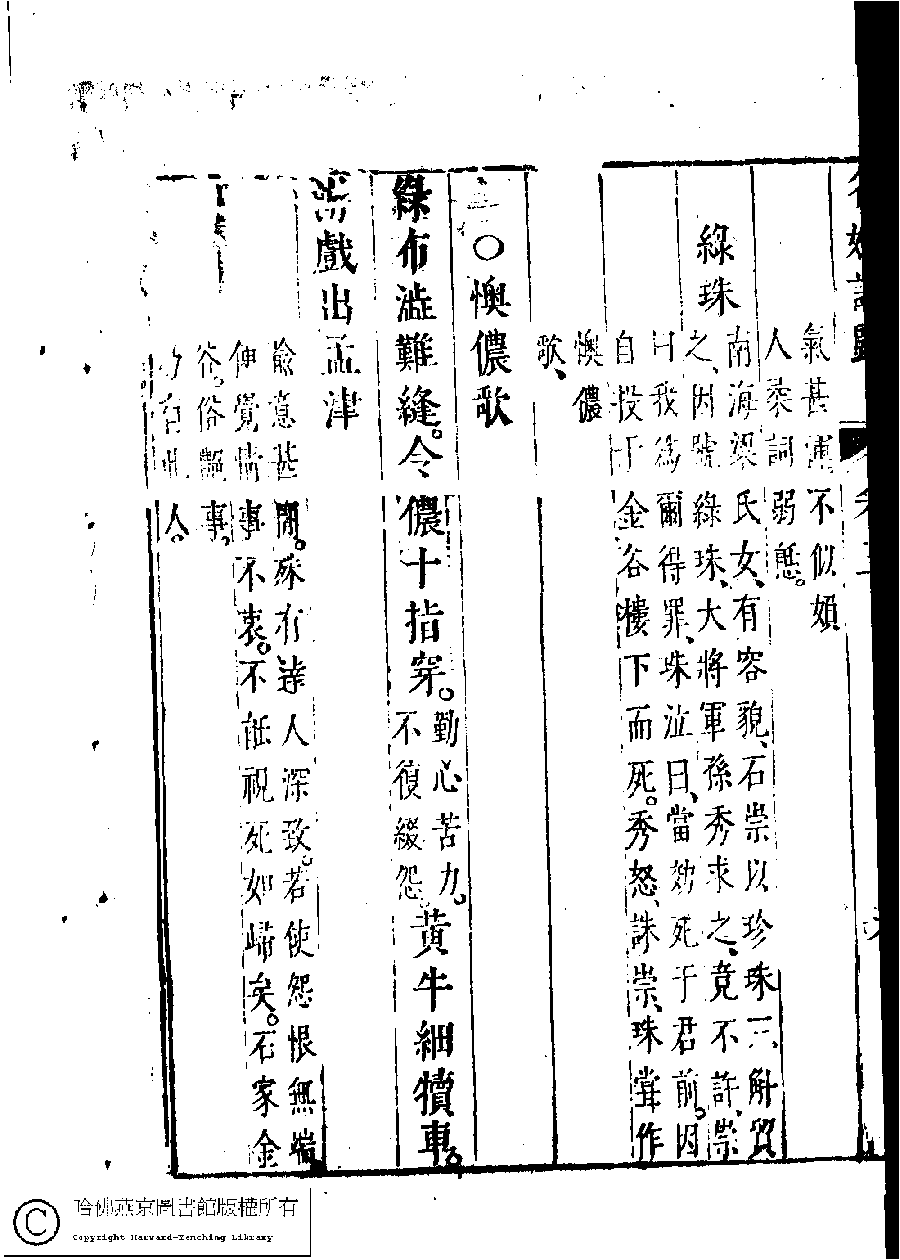 名媛詩歸
氣甚薄不似頫
人柔詞弱態。
綠珠
南海梁氏女、有容貌、石崇以珍珠三斛買
之、因號綠珠、大將軍孫秀求之、竟不許、崇
曰我為爾得罪、珠泣曰、當効死于君前。因
自投于金谷樓下而死。秀怒、誅崇、珠嘗作
懊儂
歌、
○懊儂歌
絲布澁難縫。令儂十指穿。
勤心苦力。
不復綴怨。
黃牛細犢車。
游戲出孟津
愉意甚閒。殊有達人深致。若使怨恨無端
便覺情事不衷。不能視死如歸矣。石家金
谷。俗艷事。
乃有此人。
哈佛燕京圖書館版權所有
Copyright Harvard-Yenching Library